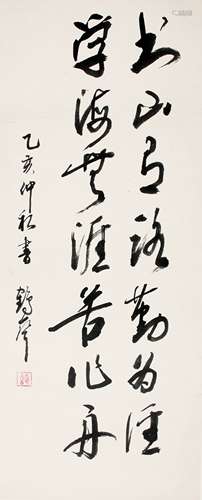 书山有路勤为径
学海无涯苦作舟
乙亥仲秋书 鹤声